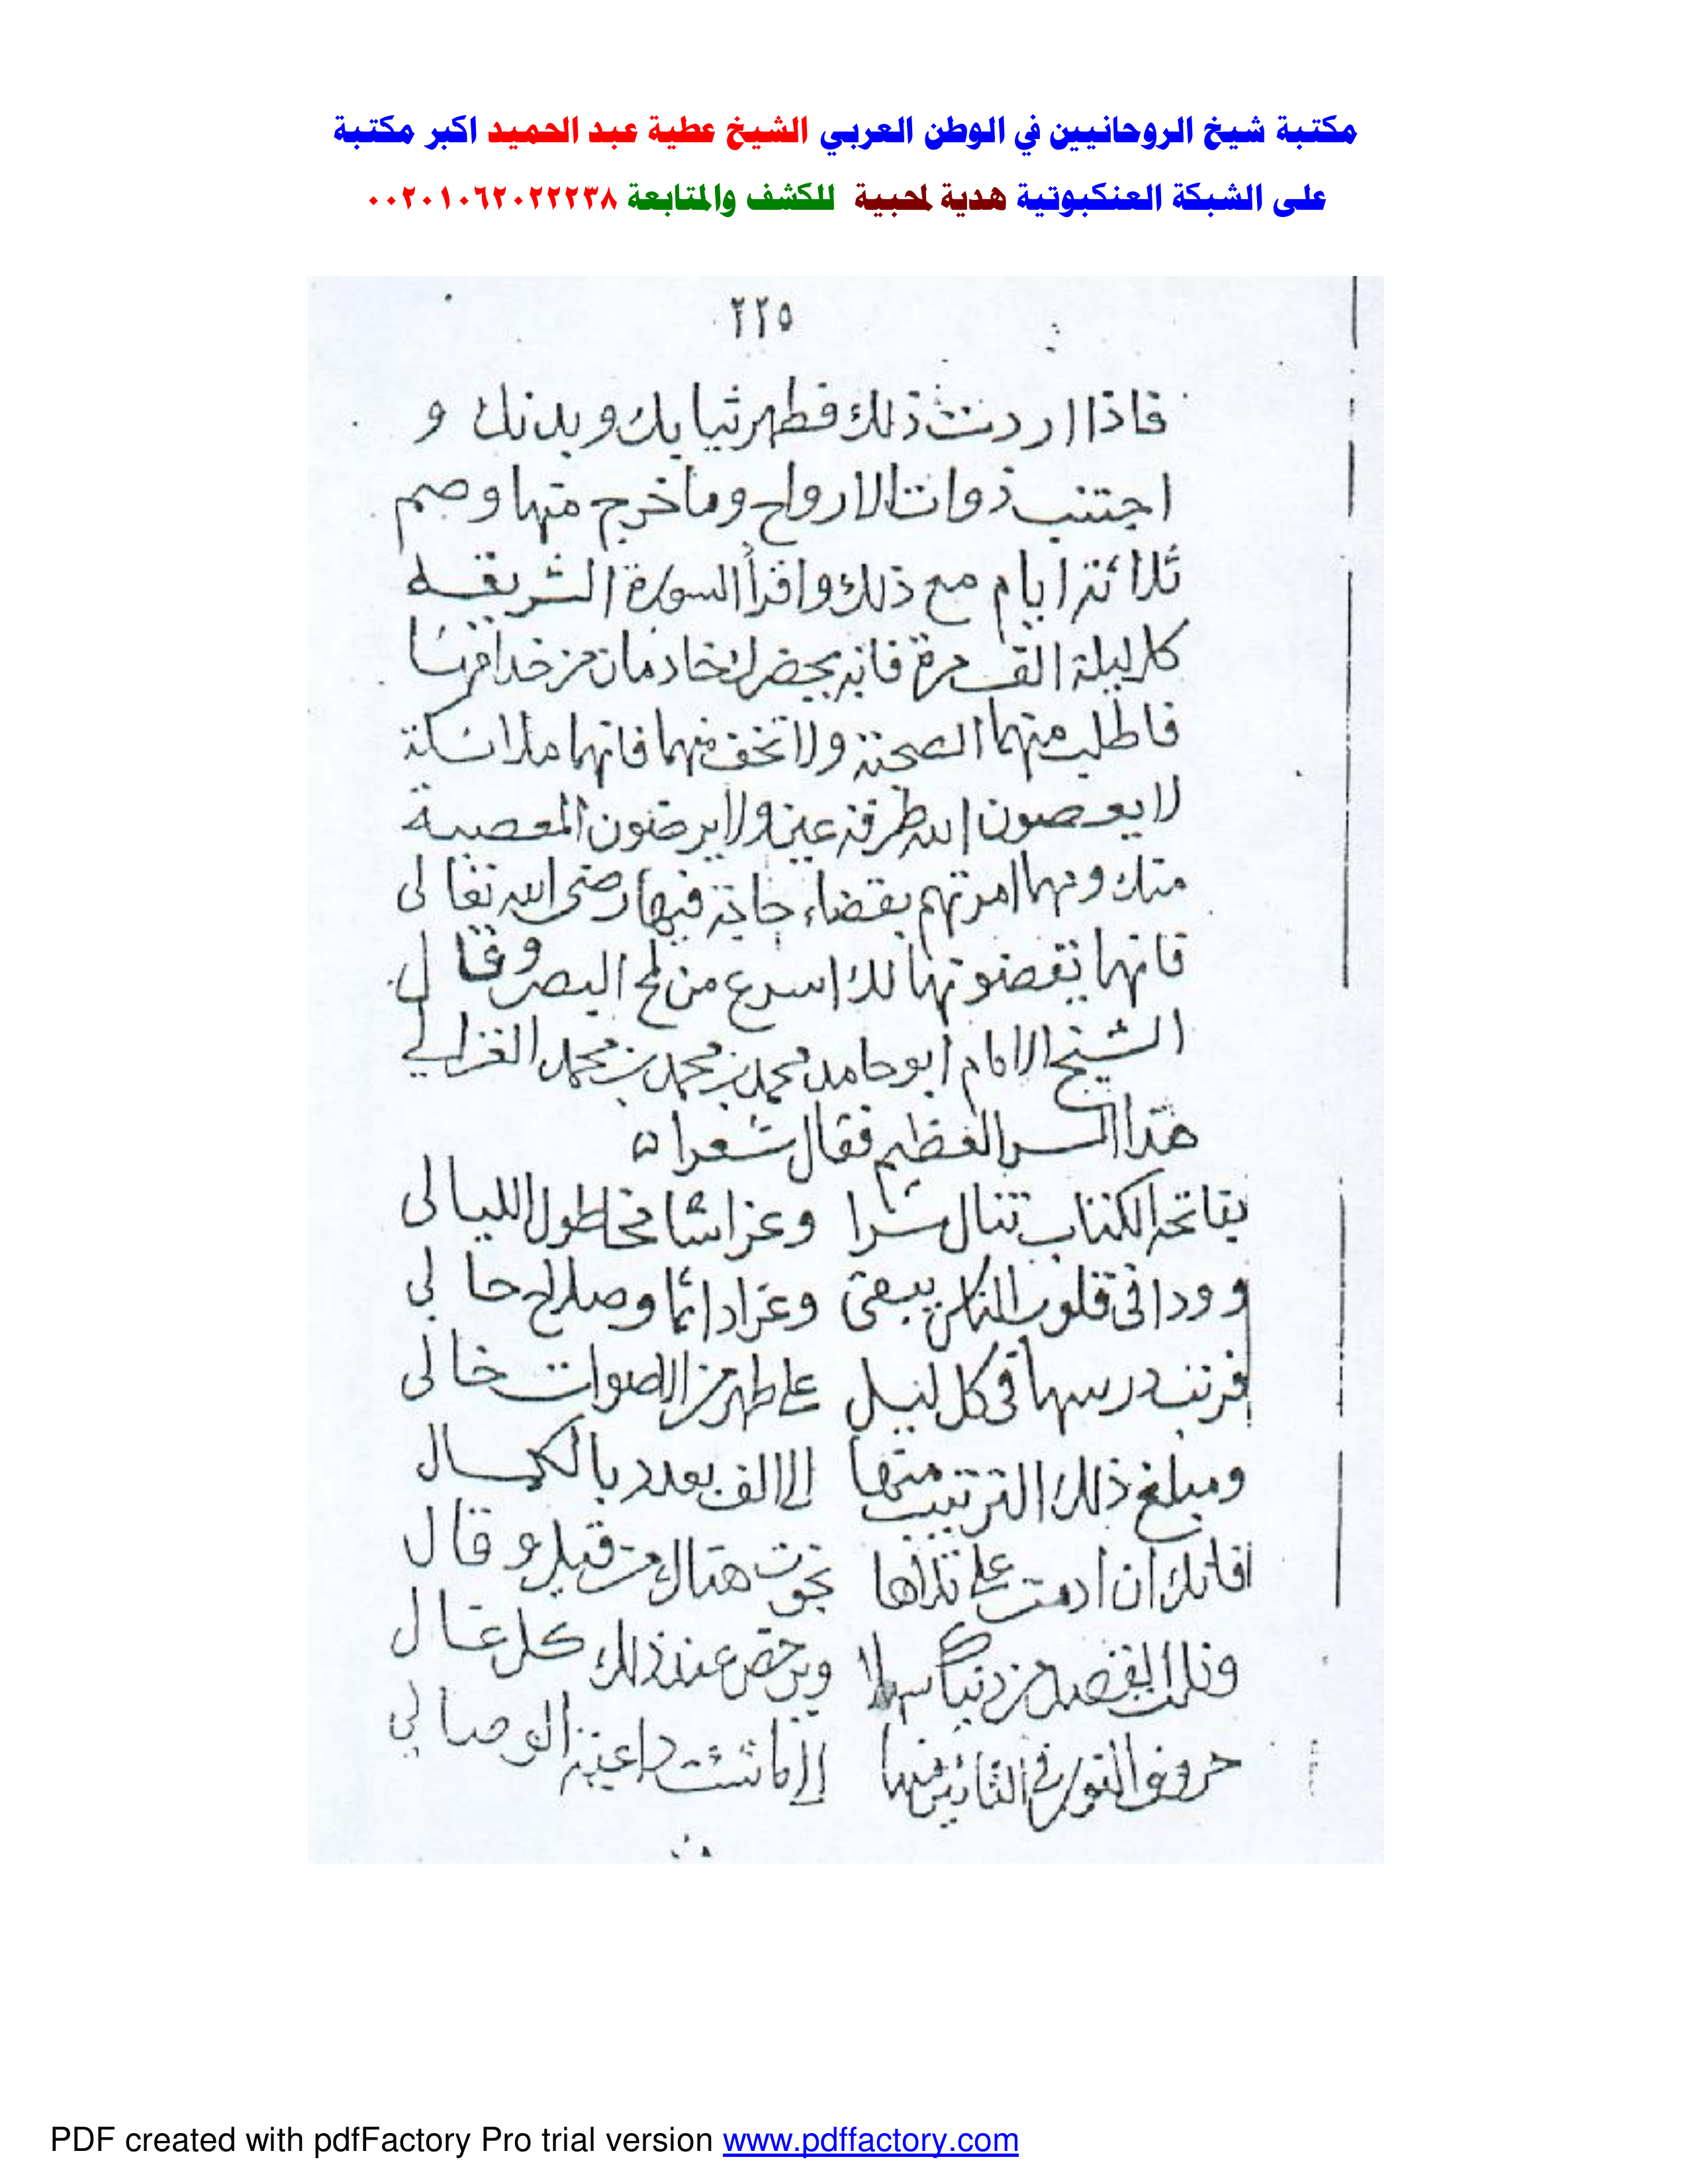 مكتبة شيخ الروحانيين في الوطن العربي الشيخ عطية عبد الحميد اكبر مكتبة
على الشبكة العنكبوتية هدية لمحبية للكشف والمتابعة ٠٠٢٠١٠٦٢٠٢٢٢٣٨
٢٢٥
فاذا اردت ذلك فطهر ثيابك وبدنك و
اجتنب ذوات الارواح وما خرج منها وصم
ثلاثة ايام مع ذلك واقرأ السورة الشريفه
كل ليلة الف مرة فانه يحضر لك خادمان من خدامها
فاطلب منهما الصحبة ولا تخف منهما فانهما ملائكة
لا يعصون الله طرفة عين ولا يرضون المعصية
منك ومهما امرتهم بقضاء حاجة فيها رضى الله تعالى
فانهما يقضونها لك اسرع من لمح البصر وقال
الشيخ الامام ابو حامد محمد بن محمد بن محمد الغزالي
هذا السر العظيم فقال شعرا
بفاتحة الكتاب تنال سرا وعزا شامخا طول الليالى
وودا فى قلوب الناس يبقى وعزا دائما وصلاح حالي
فرتب درسها فى كل ليل على طهر من الاصوات خالى
ومبلغ ذلك الترتيب منها الى الف بعدد بالكمال
فانك ان ادمت على تلاها نجوت هناك من قيل وقال
ونلت القصد من دنياك سهلا ويرخص عند ذلك كل غال
حروف النور فى منها الى ما شئت داعية الوصالي
PDF created with pdfFactory Pro trial version www.pdffactory.com